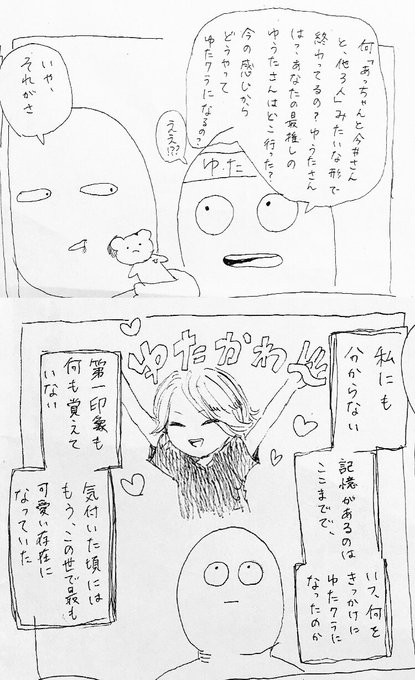 何「あっちゃんと今井さん
と、他3人」みたいな形で
終わってるの?ゆうたさん
は?あなたの最推しの
ゆうたさんはどこ行った?
今の感じから
どうやって
ゆたクラになるの?
ええ!?
ゆた
いや、
それがさ
私にも
分からない
記憶があるのは
ここまでで、
いつ、何を
きっかけに
ゆたクラに
なったのか
ゆたかわ
第一印象も
何も覚えて
いない
気付いた頃には
もう、この世で最も
可愛い存在に
なっていた